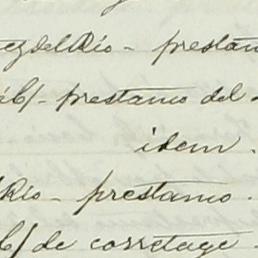 ez del Rio - prestam
b/- prestamo del
idem.
Rio - prestamo.
b/ de corretage -